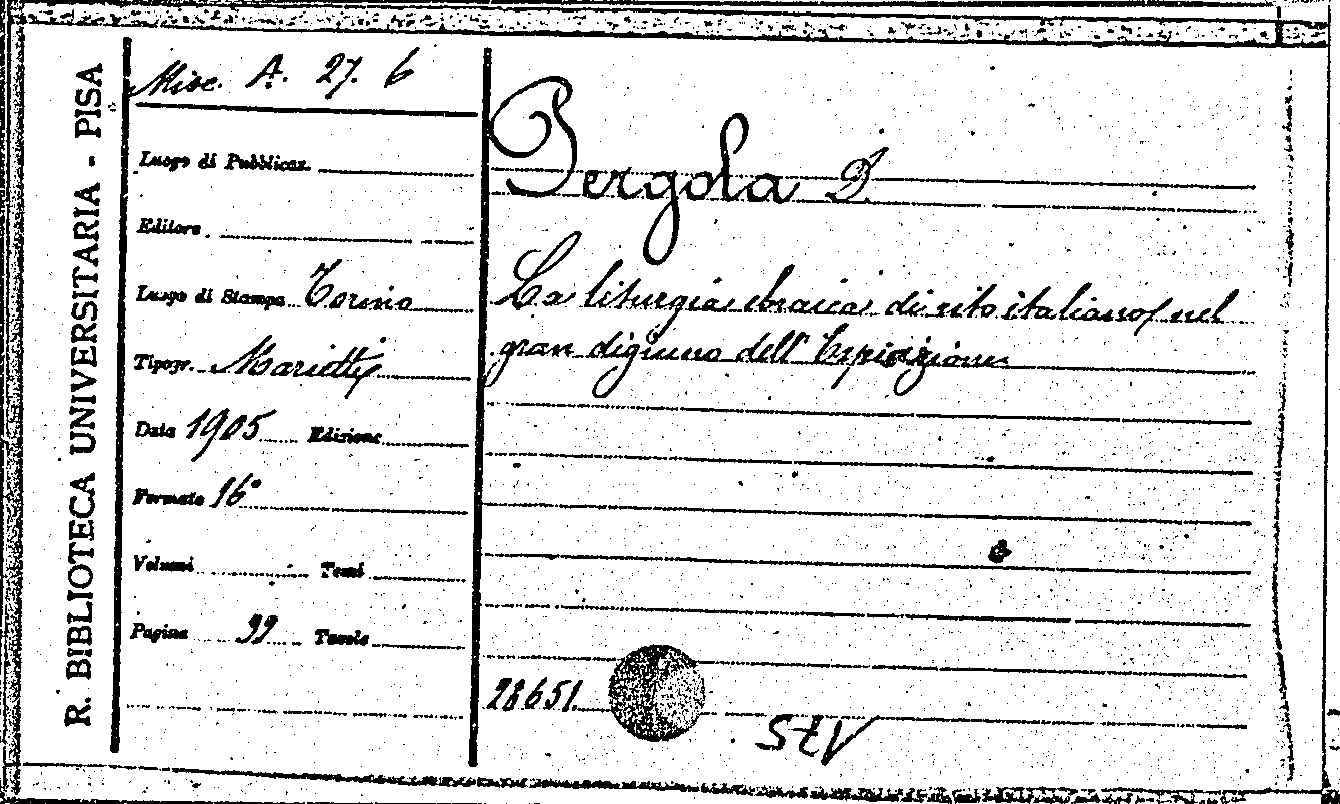 R. BIBLIOTECA UNIVERSITARIA - PISA
Misc. A. 27. 6
Luogo di Pubblicaz.
Editore
Luogo di Stampa Torino
Tipogr. Mariotti
Data 1905 Edizione
Formato 16°
Volumi Tomi
Pagine 99 Tavole
Pergola D.
La liturgia ebraica di rito italiano nel
gran digiuno dell' Espiazione
28651.